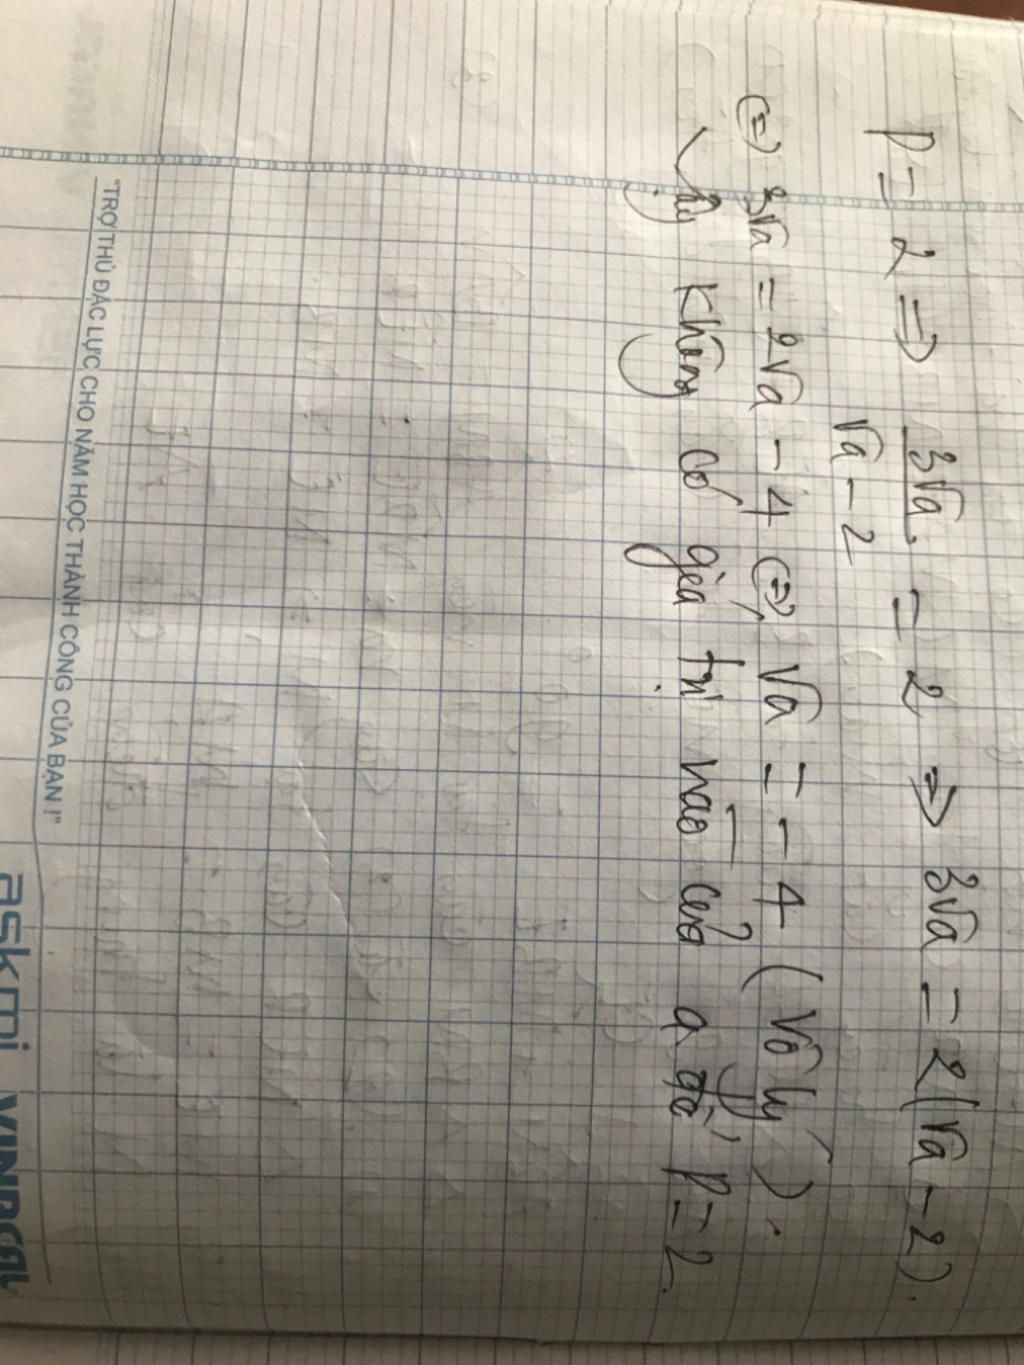 P = 2 => 3√a / √a - 2 = 2 => 3√a = 2(√a - 2).
(=) 3√a = 2√a - 4 (=) √a = -4 (Vô lý).
Vậy không có giá trị nào của a để P = 2.
"TRỢ THỦ ĐẮC LỰC CHO NĂM HỌC THÀNH CÔNG CỦA BẠN !"